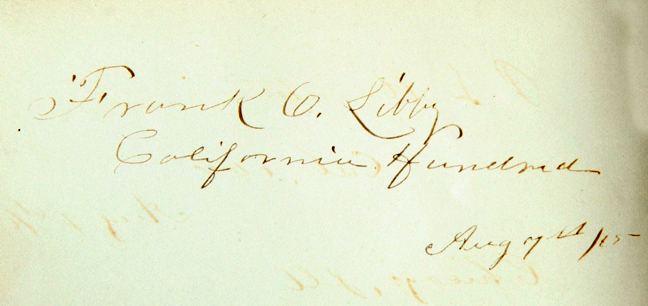 Frank O. Libby
California Hundred
Aug